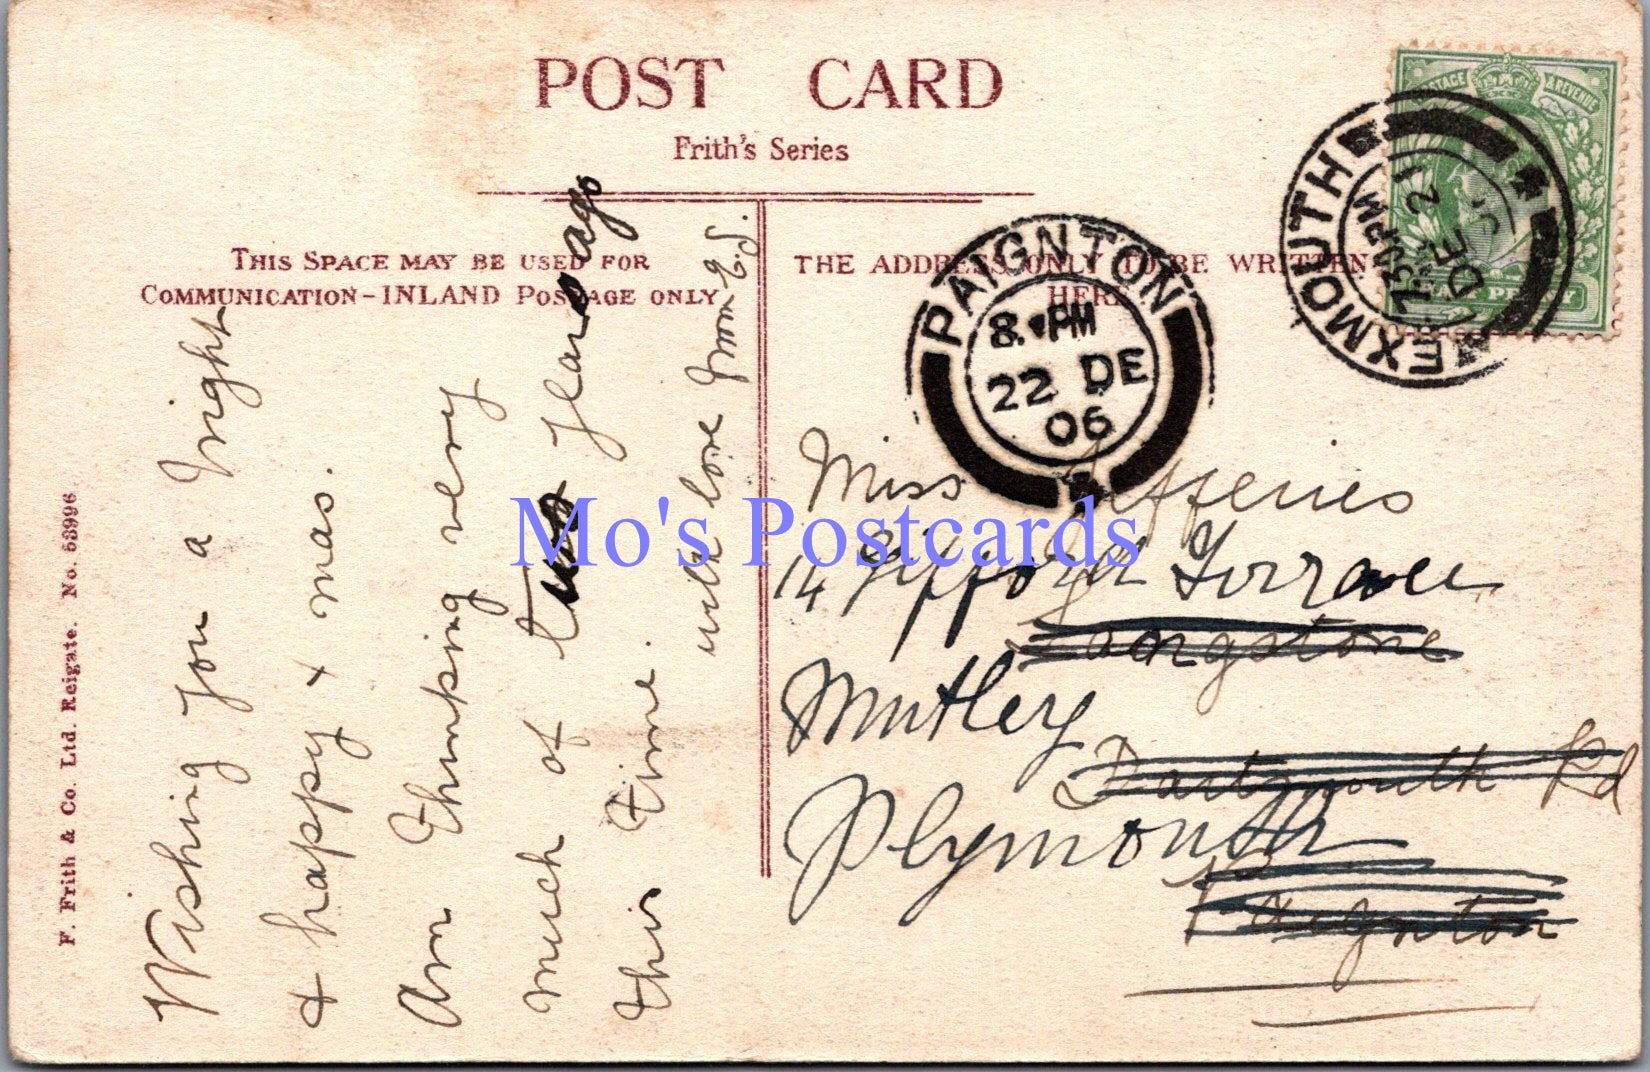 POST CARD
Frith's Series
THIS SPACE MAY BE USED FOR
COMMUNICATION-INLAND POSTAGE ONLY
THE ADDRESS ONLY TO BE WRITTEN
HERE
POSTAGE & REVENUE
HALF PENNY
EXMOUTH
7.30 PM
DE 21
PAIGNTON
8. PM
22 DE
06
Wishing you a bright
& happy Xmas.
Am thinking very
much of two years ago
this time.
with love from E.J.
Miss Jefferies
14 Gifford Terrace
Langstone
Mutley
Dartmouth Rd
Plymouth
Paignton
F. Frith & Co. Ltd. Reigate. No. 53996
Mo's Postcards